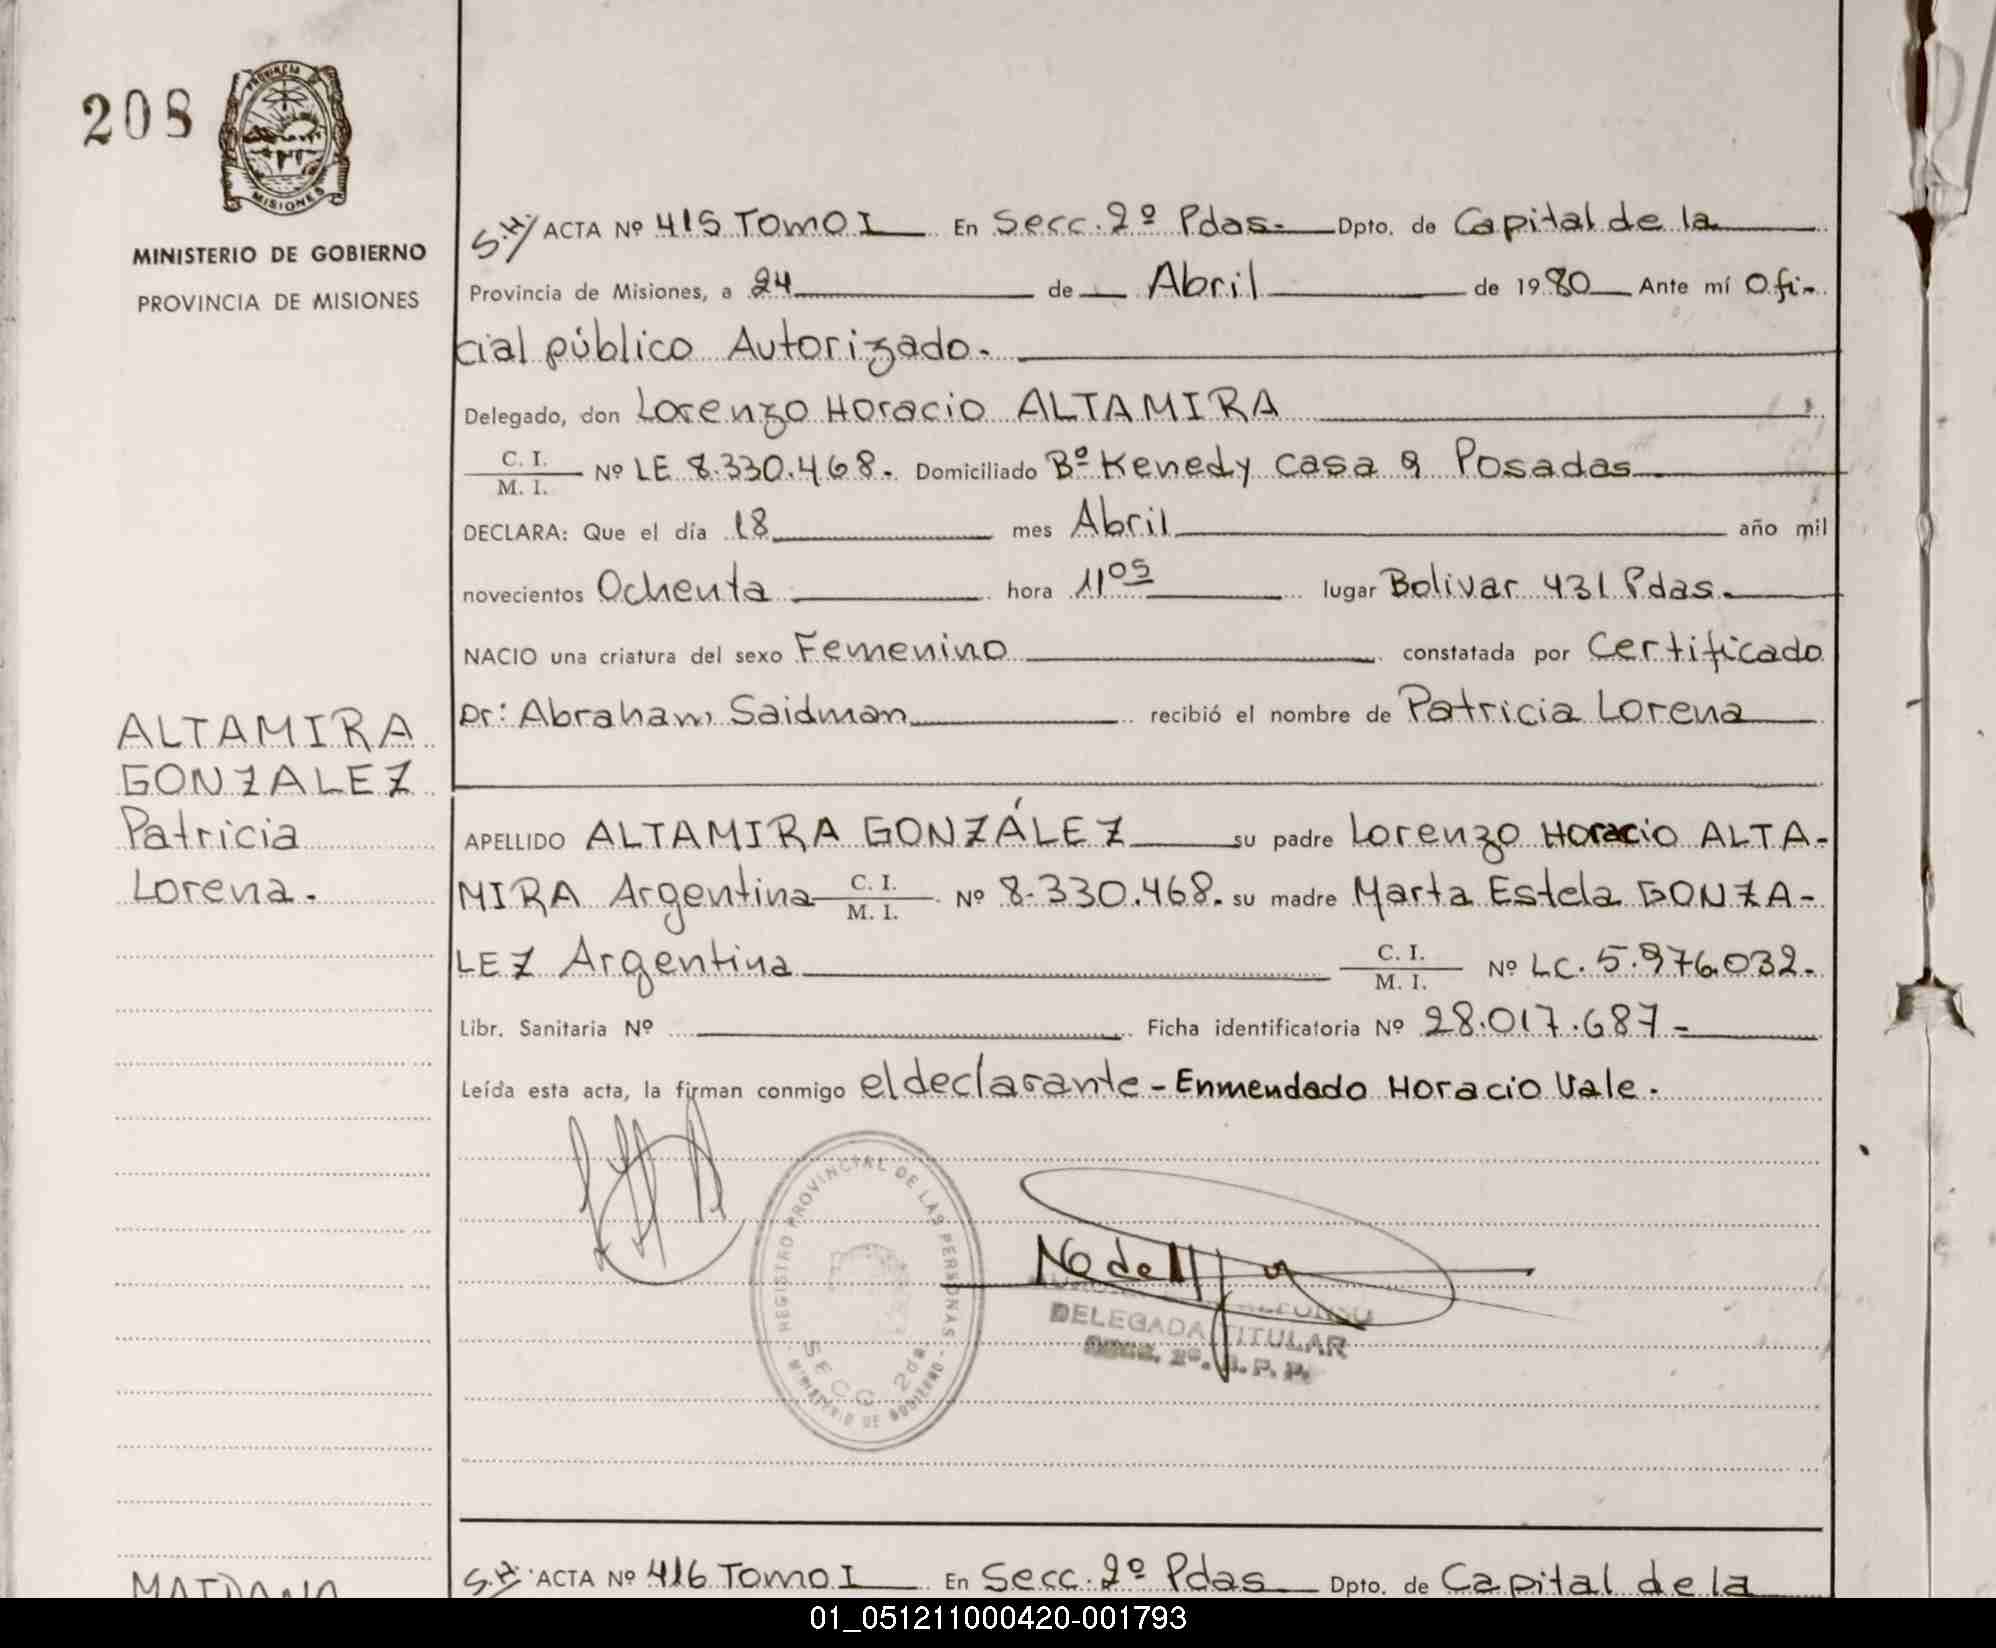 208
PROVINCIA
MISIONES
MINISTERIO DE GOBIERNO
PROVINCIA DE MISIONES
S.H/ ACTA Nº 415 Tomo I En Secc. 2º Pdas. Dpto. de Capital de la
Provincia de Misiones, a 24 de Abril de 1980 Ante mí Ofi-
cial público Autorizado.
Delegado, don Lorenzo Horacio ALTAMIRA
C. I.
M. I. Nº LE 8.330.468. Domiciliado Bº Kenedy casa 9 Posadas
DECLARA: Que el día 18 mes Abril año mil
novecientos Ochenta hora 11⁰⁵ lugar Bolivar 431 Pdas.
NACIO una criatura del sexo Femenino constatada por Certificado
Dr: Abraham Saidman recibió el nombre de Patricia Lorena
ALTAMIRA
GONZALEZ
Patricia
Lorena.
APELLIDO ALTAMIRA GONZÁLEZ su padre Lorenzo Horacio ALTA-
MIRA Argentina C. I. M. I. Nº 8.330.468. su madre Marta Estela GONZA-
LEZ Argentina C. I. M. I. Nº LC. 5.976.032.
Libr. Sanitaria Nº Ficha identificatoria Nº 28.017.687-
Leída esta acta, la firman conmigo el declarante - Enmendado Horacio Vale.
REGISTRO PROVINCIAL DE LAS PERSONAS
SECC. 2da
MINISTERIO DE GOBIERNO
DELEGADA TITULAR
S.H. ACTA Nº 416 Tomo I En Secc. 2º Pdas Dpto. de Capital de la
01_051211000420-001793